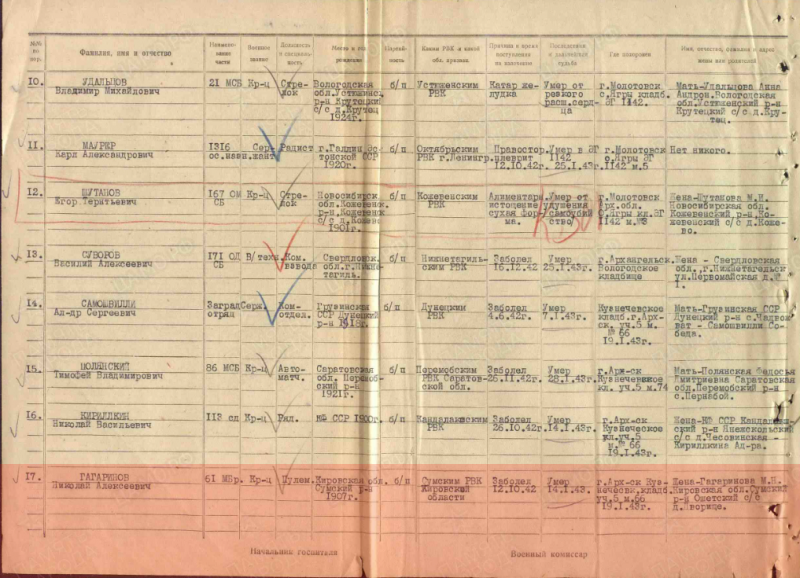 №№ п/п.
Фамилия, имя и отчество
Наимено-
вание
части
Военное
звание
Должность
и специаль-
ность
Место и год
рождения
Партий-
ность
Каким РВК и какой
обл. призван
Причина и время
поступления
на излечение
Где похоронен
Имя, отчество, фамилия и адрес
жены или родителей
10. УДАЛЬЦОВ
Владимир Михайлович
21 МСБ Кр-ц
Стре-
лок
Вологодская
обл.Устюженск.
р-н Крутецкий
с/с д.Крутец
1924г.
б/п
Устюженским
РВК
Катар же-
лудка
Умер от
расш.серд-
ца
г.Молотовск
с.Ягры кладб.
ЭГ 1142.
Мать-Удальцова Анна
Андрон.Вологодская
обл.Устюженский р-н
Крутецкий с/с д.Кру-
тец.
11. МАУРЕР
Карл Александрович
1316 Сер-
жант
Радист
г.Таллин Эс-
тонской ССР
1920г.
б/п
Октябрьским
РВК г.Ленингр.
Правостор.
плеврит
12.10.42г.
Умер в ЭГ
1142
25.1.43г.
г.Молотовск
с.Ягры ЭГ
1142 м.5
Нет никого.
12. ШУТАНОВ
Егор Терентьевич
167 ОЛ
СБ
Кр-ц
Стре-
лок
Новосибирск
обл.Кожевенк.
р-н.Кожевенк
с/с д.Кожев.
1901г.
б/п
Кожевенским
РВК
Алиментарн
истощение
сухая фор-
ма.
Умер от
удушения
/самоубий
ство/
г.Молотовск
Арх.обл.
С.Ягры кл.ЭГ
1142 м.№3
Жена-Шутанова М.Н.
Новосибирская обл.
Кожевенский р-н Ко-
жевенский с/с д.Коже-
вено.
13. СУВОРОВ
Василий Алексеевич
171 ОЛ
СБ
В/техн.
Ком.
взвода
Свердловск.
обл.г.Нижне-
тагиль.
Нижнетагиль-
ским РВК
Заболел
16.12.42
Умер
25.1.43г.
г.Архангельск
Вологодское
кладбище
Жена - Свердловская
обл.,г.Нижнетагельск
ул.Первомайская д.№
1.
14. САМОШВИЛЛИ
Ал-др Сергеевич
Заград
отряд
Серж.
Ком-
отдел.
Грузинская
ССР Душецкий
р-н 1918г.
б/п
Дунецким
РВК
Заболел
4.6.42г.
Умер
7.1.43г.
Кузнечевское
кладб.г.Арх-
ск. уч.5 м.
№ 66
19.1.43г.
Мать-Грузинская ССР
Дунецкий р-н с.Чадвос
ват - Самошвилли Со-
беда.
15. ПОЛЯНСКИЙ
Тимофей Владимирович
86 МСБ Кр-ц
Авто-
матч.
Саратовская
обл. Переmоб-
ский р-н
1921г.
б/п
РВК Саратов-
ской обл.
Заболел
26.11.42г.
Умер
28.1.43г.
г.Арх-ск
Кузнечевское
кл. уч.5 м.74
Мать-Полянская Федосья
Дмитриевна Саратовская
16. КИРИЛЛКИН
Николай Васильевич
113 сд Кр-ц
Ряд.
КФ ССР 1900г.
б/п
Кандалакшским
РВК
Заболел
26.10.42г
Умер
14.1.43г.
г.Арх-ск
Кузнечевское
кл.уч.5
м.№66
19.1.43г.
Жена-КФ ССР Кандалак-
с/с д.Чесовинская -
Кириллкина Ал-ра.
17. ГАГАРИНОВ
Николай Алексеевич
61 МБр. Кр-ц
Пулем.
Кировская обл.
Сумский р-н
1907г.
б/п
Сумским РВК
Кировской
области
Заболел
12.10.42
Умер
14.1.43.
г.Арх-ск Куз-
нечевск.кладб.
уч.5 м.66
19.1.43г.
Жена-Гагаринова М.Н.
Кировская обл.Сумский
р-н Ошетский с/с
д.Дворище.
Начальник госпиталя
Военный комиссар